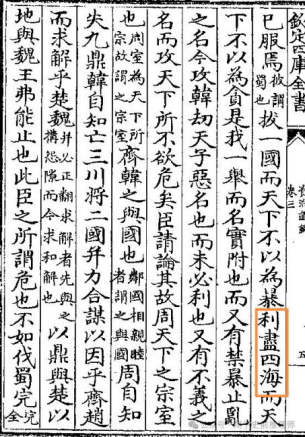 欽定四庫全書
資治通鑑
卷三
五
已服焉彼謂蜀也拔一國而天下不以為暴利盡四海而天
下不以為貪是我一舉而名實附也而又有禁暴止亂
之名今攻韓劫天子惡名也而未必利也又有不義之
名而攻天下所不欲危矣臣請論其故周天下之宗室
也周室為天下所宗故謂之宗室齊韓之與國也鄰國相親睦者謂之與國周自知
失九鼎韓自知亡三川將二國并力合謀以因乎齊趙
而求解乎楚魏并必正翻求解者先與之構怨隙而今求和解也以鼎與楚以
地與魏王弗能止也此臣之所謂危也不如伐蜀完完全